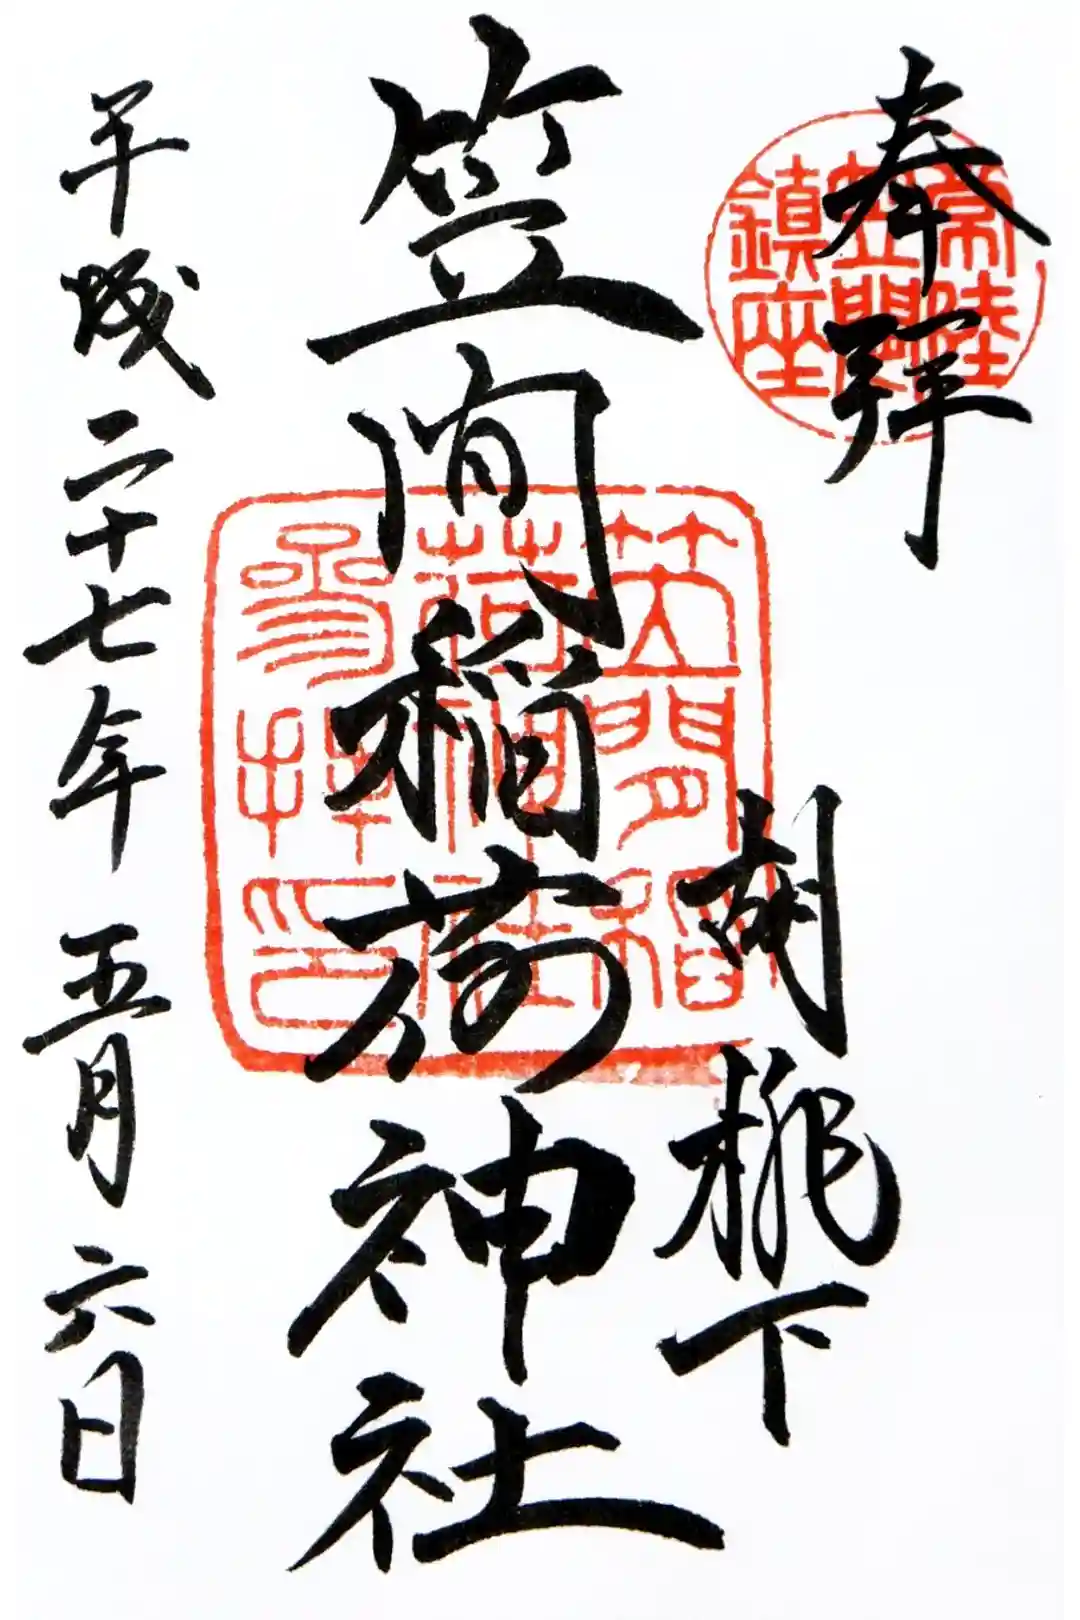 奉拝
常陸
笠間
鎮座
胡桃下
笠間稲荷神社
笠間稲
荷神社
参拝印
平成二十七年五月六日